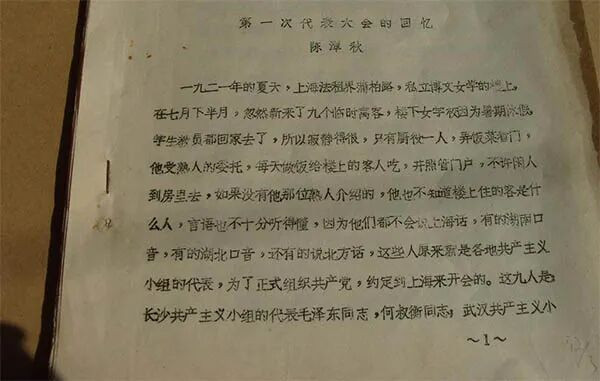 第一次代表大会的回忆
陈潭秋
一九二一年的夏天，上海法租界蒲柏路，私立博文女学的楼上，
在七月下半月，忽然新来了九个临时寓客，楼下女学校因为暑期休假，
学生教员都回家去了，所以寂静得很，只有厨役一人，弄饭菜看门，
他受熟人的委托，每天做饭给楼上的客人吃，并照管门户，不许闲人
到房里去，如果没有他那位熟人介绍的，他也不知道楼上住的客是什
么人，言语也不十分听得懂，因为他们都不会说上海话，有的湖南口
音，有的湖北口音，还有的说北方话，这些人原来就是各地共产主义
小组的代表，为了正式组织共产党，约定到上海来开会的。这九人是：
长沙共产主义小组的代表毛泽东同志，何叔衡同志；武汉共产主义小
～1～